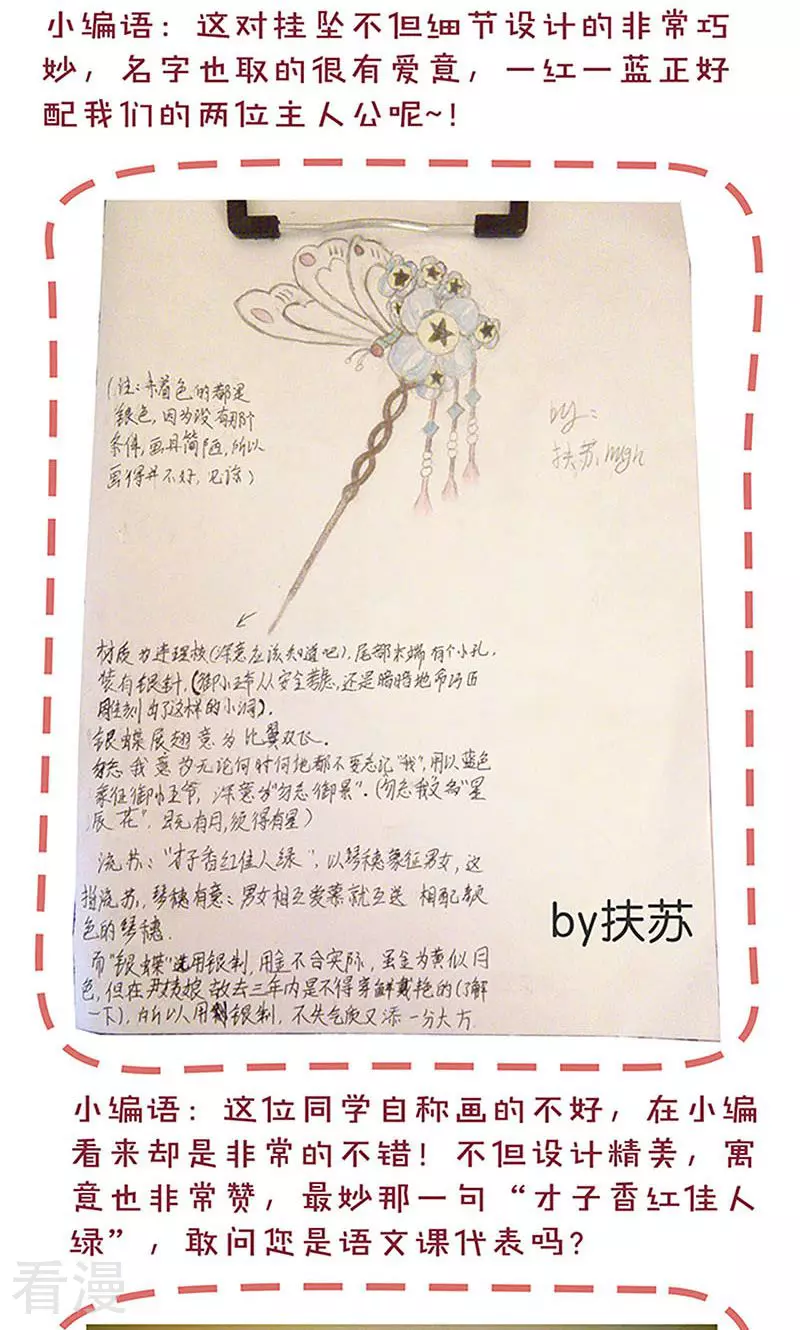 小编语：这对挂坠不但细节设计的非常巧
妙，名字也取的很有爱意，一红一蓝正好
配我们的两位主人公呢~！
（注：未着色的都是
银色，因为没有那个
条件，画具简陋，所以
画得并不好，见谅）
by：
扶苏.mgn
材质为连理枝（深意应该知道吧），尾部末端有个小孔，
装有银针，（御小王爷从安全考虑，还是暗暗地命巧匠
雕刻出了这样的小洞）．
银蝶展翅意为比翼双飞．
勿忘我意为无论何时何地都不要忘记“我”，用以蓝色
象征御小王爷，深意为“勿忘御景”．（勿忘我又名“星
辰花”．既无有月，须得有星）
流苏：“才子香红佳人绿”．以琴穗象征男女，这
指流苏，琴穗有意：男女相互爱慕就互送 相配颜
色的琴穗．
而“银蝶”选用银制，用金不合实际，虽金为黄似月
色，但在尹姑娘故去三年内是不得穿鲜戴艳的（了解
一下），所以用银制，不失气质又添一分大方
by扶苏
小编语：这位同学自称画的不好，在小编
看来却是非常的不错！不但设计精美，寓
意也非常赞，最妙那一句“才子香红佳人
绿”，敢问您是语文课代表吗？
看漫